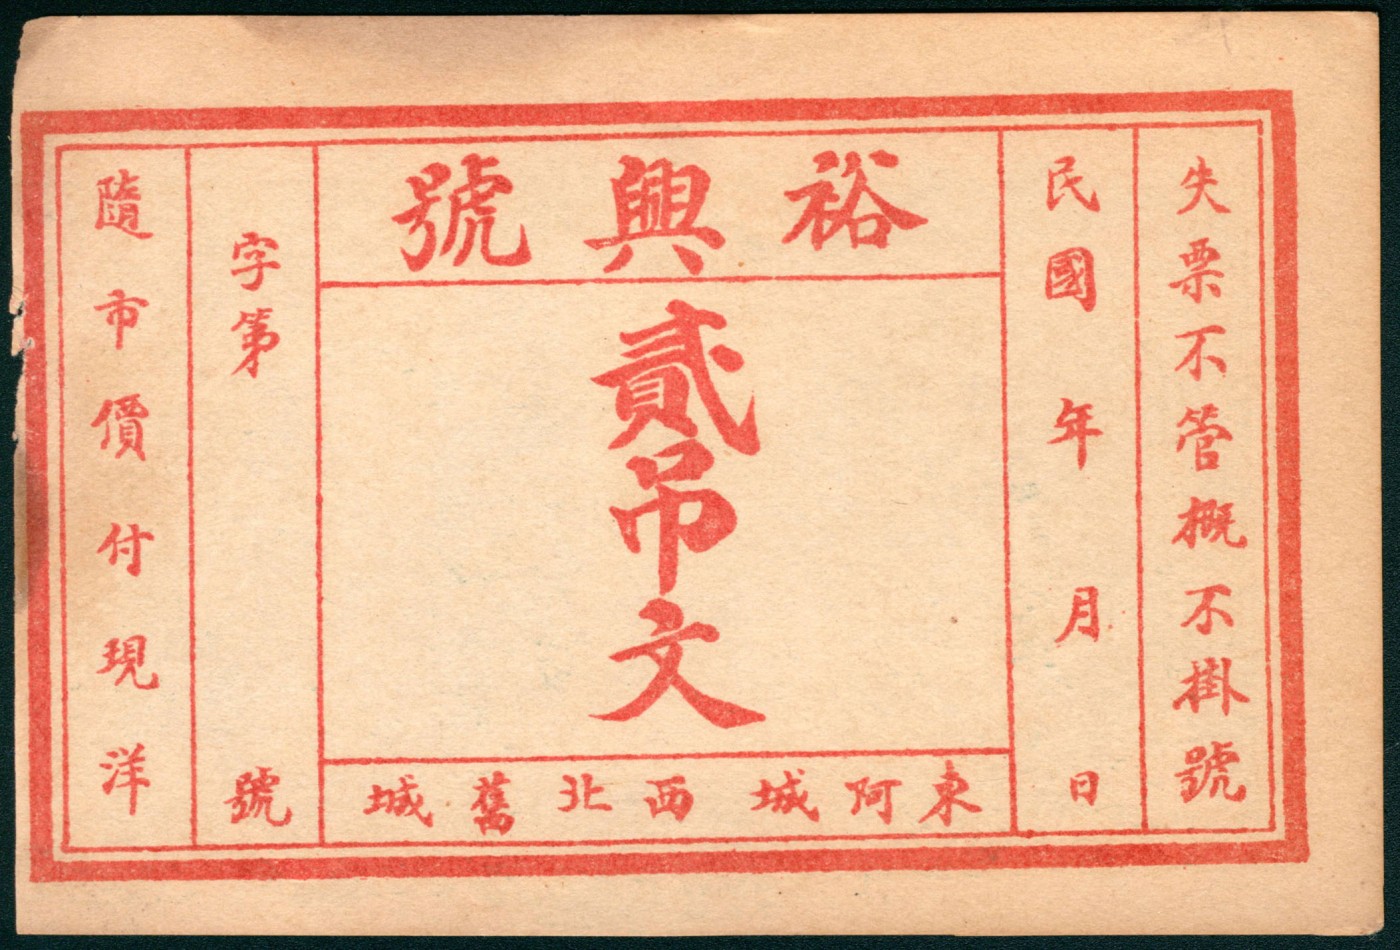 裕興號
失票不管概不掛號
民國年月日
貳吊文
字第號
隨市價付現洋
東阿城西北舊城